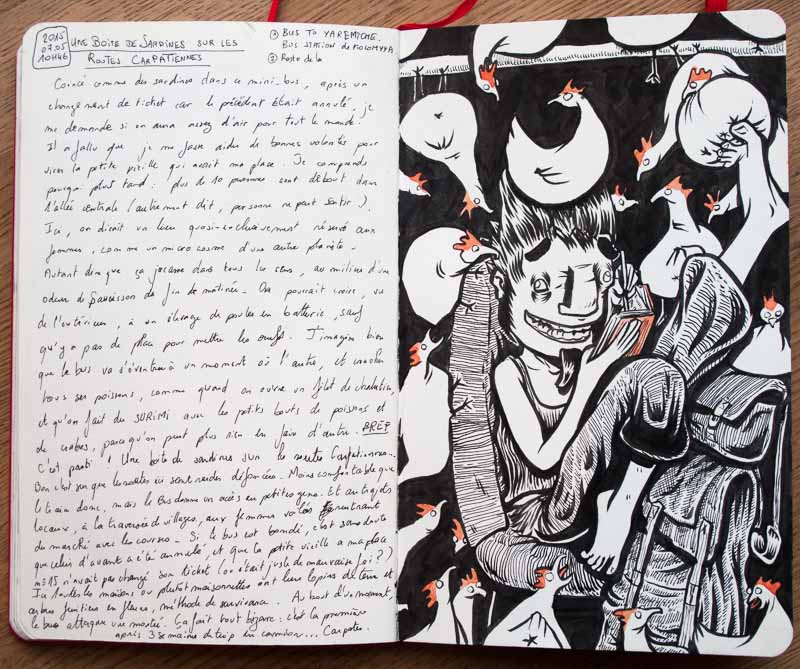 2015
07.05
10H46
UNE BOÎTE DE SARDINES SUR LES
ROUTES CARPATIENNES
① BUS TO YAREMTCHE.
BUS STATION DE KOLOMYYA
② Reste de la
Coincé comme des sardines dans ce mini-bus, après un
changement de ticket car le précédent était annulé, je
me demande si on aura assez d'air pour tout le monde.
Il a fallu que je me fasse aider de bonnes volontés pour
virer la petite vieille qui avait ma place. Je comprends
pourquoi plus tard : plus de 10 personnes sont debout dans
l'allée centrale (autrement dit, personne ne peut sortir).
Ici, on dirait un lieu quasi-exclusivement réservé aux
femmes, comme un microcosme d'une autre planète.
Autant dire que ça jacasse dans tous les sens, au milieu d'une
odeur de saucisson de fin de matinée. On pourrait croire, vu
de l'extérieur, à un élevage de poules en batterie, sauf
qu'y a pas de place pour mettre les oeufs. J'imagine bien
que le bus va s'éventrer à un moment où l'autre, et cracher
tous ses poissons, comme quand on ouvre un filet de chalutier,
et qu'on fait du SURIMI avec les petits bouts de poissons et
de crabes, parce qu'on peut plus rien en faire d'autre. BREF
C'est parti ! Une boîte de sardines sur les routes Carpatiennes.
Bon c'est sur que les routes ici sont raides défoncées. Moins comfortable que
le train donc, mais le bus donne un accès en petites gens. Et aux trajets
locaux, à la traversée de villages, aux femmes rentrant
du marché avec les courses. Si le bus est bondé, c'est sans doute
que celui d'avant a été annulé, et que la petite vieille a ma place
n=15 n'avait pas changé son ticket (ou était juste de mauvaise foi ?)
Ici toutes les maisons ou plutôt maisonnettes ont leurs lopins de terre et
arbres fruitiers en fleurs, méthode de survivance. Au bout d'un moment,
le bus attaque une montée. Ça fait tout bizarre : c'est la première
après 3 semaines de trip en camion... Carpates.